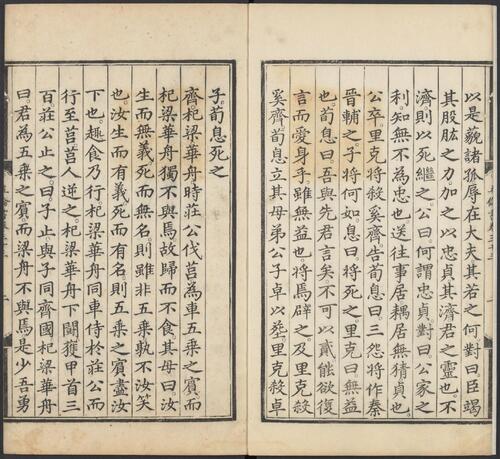 以是藐諸孤辱在大夫其若之何對曰臣竭
其股肱之力加之以忠貞其濟君之靈也不
濟則以死繼之公曰何謂忠貞對曰公家之
利知無不為忠也送往事居耦居無猜貞也
公卒里克將殺奚齊告荀息曰三怨將作秦
晉輔之子將何如息曰將死之里克曰無益
也荀息曰吾與先君言矣不可以貳能欲復
言而愛身乎雖無益也將焉辟之及里克殺
奚齊荀息立其母弟公子卓以塟里克殺卓
子荀息死之
齊杞梁華舟時莊公伐莒為車五乘之賓而
杞梁華舟獨不與焉故歸而不食其母曰汝
生而無義死而無名則雖非五乘孰不汝笑
也汝生而有義死而有名則五乘之賓盡汝
下也趣食乃行杞梁華舟同車侍於莊公而
行至莒莒人逆之杞梁華舟下鬭獲甲首三
百莊公止之曰子止與子同齊國杞梁華舟
曰君為五乘之賓而梁舟不與焉是少吾勇